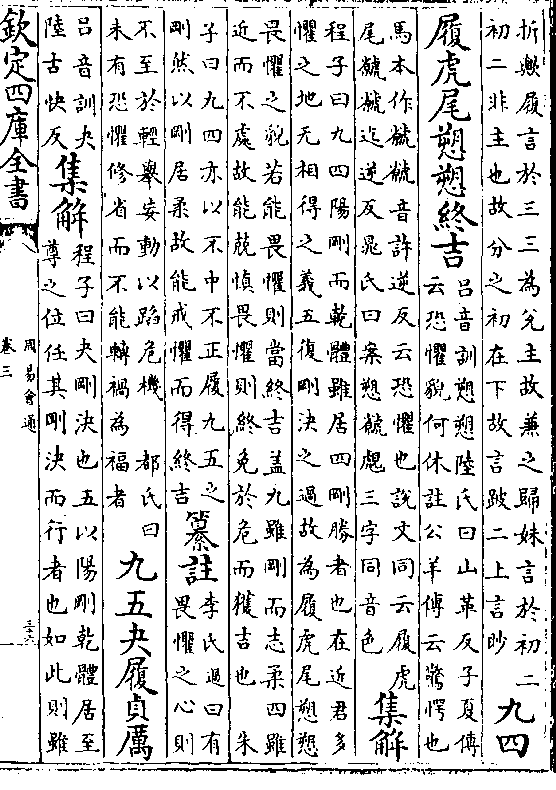 折歟履言於三三為兌主故兼之歸妹言於初二
初二非主也故分之初在下故言跛二上言眇
九四
履虎尾愬愬終吉
吕音訓愬愬陸氏曰山革反子夏傳
云恐懼貌何休註公羊傳云驚愕也
馬本作虩虩音許逆反云恐懼也說文同云履虎
尾虩虩迄逆反晁氏曰案愬虩覤三字同音色
集解
程子曰九四陽剛而乾體雖居四剛勝者也在近君多
懼之地无相得之義五復剛決之過故為履虎尾愬愬
畏懼之貌若能畏懼則當終吉盖九雖剛而志柔四雖
近而不處故能兢慎畏懼則終免於危而獲吉也 朱
子曰九四亦以不中不正履九五之
剛然以剛居柔故能戒懼而得終吉
纂註
李氏過曰有
畏懼之心則
不至於輕舉妄動以蹈危機 都氏曰
未有恐懼修省而不能轉禍為福者
九五夬履貞厲
吕音訓夬
陸古快反
集解
程子曰夬剛決也五以陽剛乾體居至
尊之位任其剛決而行者也如此則雖
欽定四庫全書
周易會通
卷三